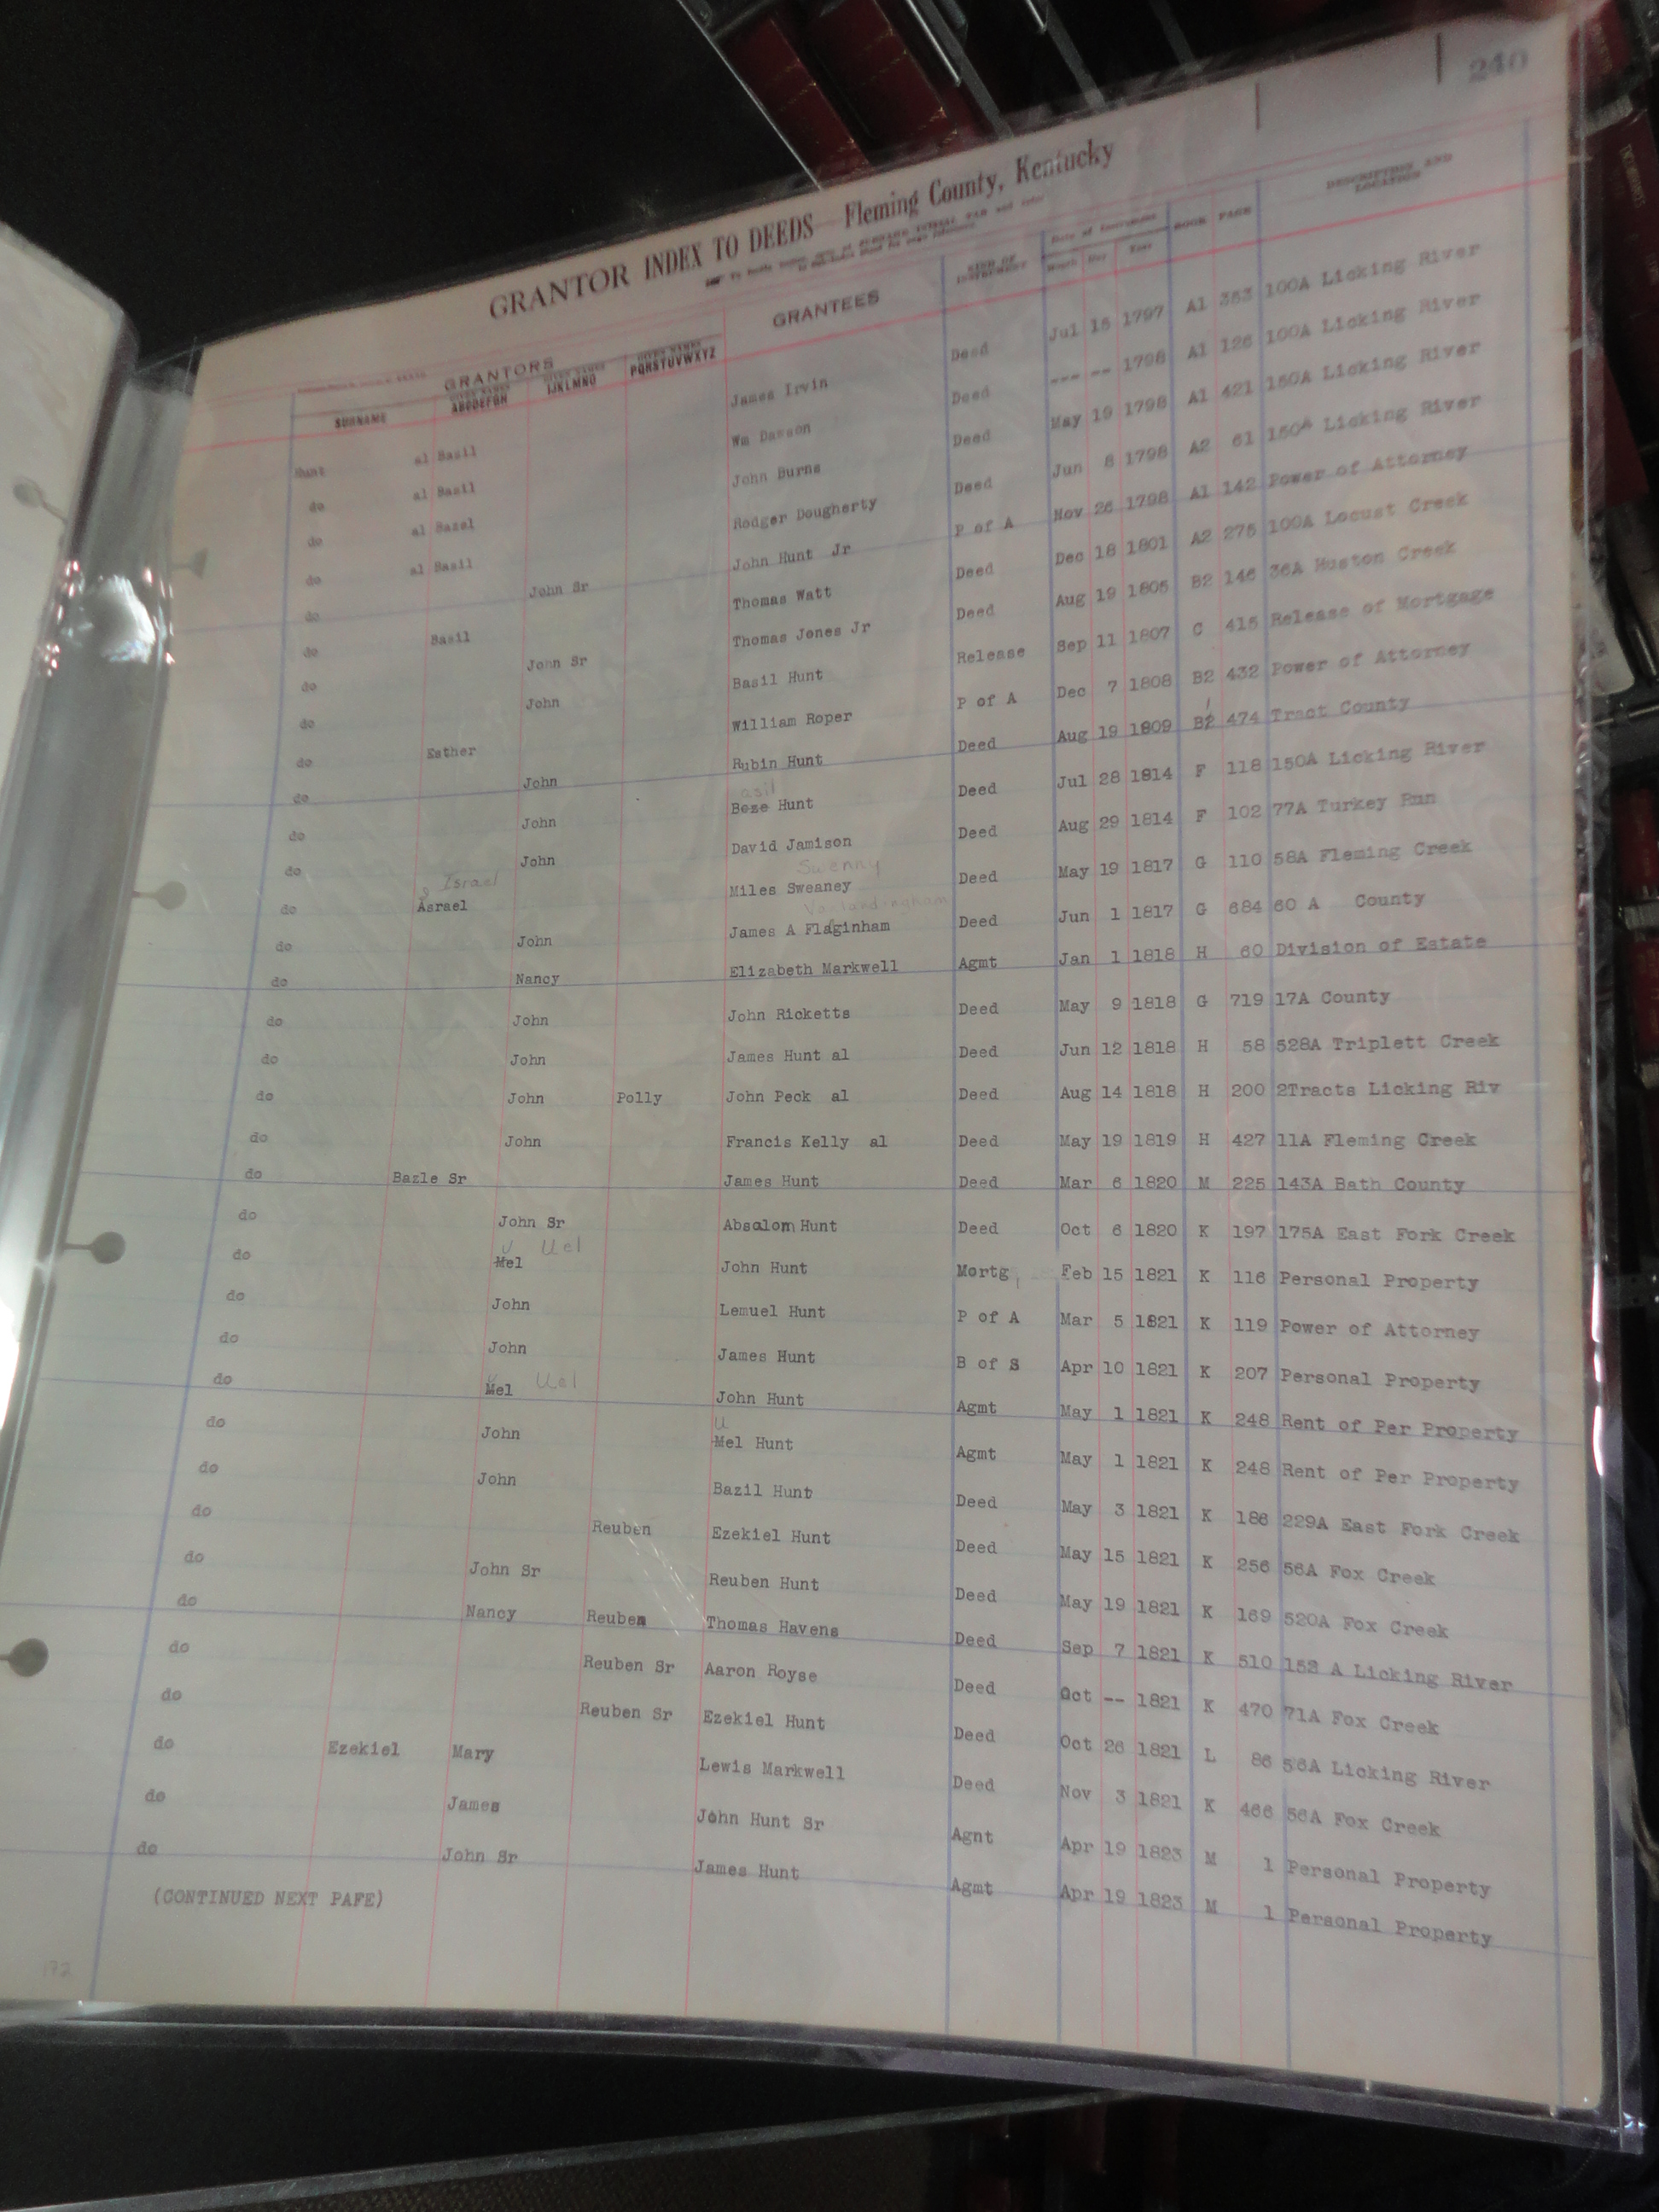 240
GRANTOR INDEX TO DEEDS—Fleming County, Kentucky
GRANTORS GRANTEES KIND OF INSTRUMENT Date of Instrument BOOK PAGE DESCRIPTION AND LOCATION
SURNAME GIVEN NAMES ABCDEFGH GIVEN NAMES IJKLMNO GIVEN NAMES PQRSTUVWXYZ Month Day Year
Hunt al Basil James Irvin Deed Jul 15 1797 A1 353 100A Licking River
do al Basil Wm Dawson Deed --- -- 1798 A1 126 100A Licking River
do al Basel John Burns Deed May 19 1798 A1 421 150A Licking River
do al Basil Rodger Dougherty Deed Jun 8 1798 A2 61 150A Licking River
do John Sr John Hunt Jr P of A Nov 26 1798 A1 142 Power of Attorney
do Basil Thomas Watt Deed Dec 18 1801 A2 275 100A Locust Creek
do John Sr Thomas Jones Jr Deed Aug 19 1805 B2 146 36A Huston Creek
do John Basil Hunt Release Sep 11 1807 C 415 Release of Mortgage
do Esther William Roper P of A Dec 7 1808 B2 432 Power of Attorney
do John Rubin Hunt Deed Aug 19 1809 B2 474 Tract County
asil
do John Beze Hunt Deed Jul 28 1814 F 118 150A Licking River
do John David Jamison Deed Aug 29 1814 F 102 77A Turkey Run
Israel Swenny
do Asrael Miles Sweaney Deed May 19 1817 G 110 58A Fleming Creek
Vanlandingham
do John James A Flaginham Deed Jun 1 1817 G 684 60 A County
do Nancy Elizabeth Markwell Agmt Jan 1 1818 H 60 Division of Estate
do John John Ricketts Deed May 9 1818 G 719 17A County
do John James Hunt al Deed Jun 12 1818 H 58 528A Triplett Creek
do John Polly John Peck al Deed Aug 14 1818 H 200 2Tracts Licking Riv
do John Francis Kelly al Deed May 19 1819 H 427 11A Fleming Creek
do Bazle Sr James Hunt Deed Mar 6 1820 M 225 143A Bath County
do John Sr Absalom Hunt Deed Oct 6 1820 K 197 175A East Fork Creek
U Uel
do Mel John Hunt Mortg Feb 15 1821 K 116 Personal Property
do John Lemuel Hunt P of A Mar 5 1821 K 119 Power of Attorney
do John James Hunt B of S Apr 10 1821 K 207 Personal Property
U Uel
do Mel John Hunt Agmt May 1 1821 K 248 Rent of Per Property
U
do John Mel Hunt Agmt May 1 1821 K 248 Rent of Per Property
do John Bazil Hunt Deed May 3 1821 K 186 229A East Fork Creek
do Reuben Ezekiel Hunt Deed May 15 1821 K 256 56A Fox Creek
do John Sr Reuben Hunt Deed May 19 1821 K 169 520A Fox Creek
do Nancy Reuben Thomas Havens Deed Sep 7 1821 K 510 152 A Licking River
do Reuben Sr Aaron Royse Deed Oct -- 1821 K 470 71A Fox Creek
do Reuben Sr Ezekiel Hunt Deed Oct 26 1821 L 86 56A Licking River
do Ezekiel Mary Lewis Markwell Deed Nov 3 1821 K 466 56A Fox Creek
do James John Hunt Sr Agnt Apr 19 1823 M 1 Personal Property
do John Sr James Hunt Agmt Apr 19 1823 M 1 Personal Property
(CONTINUED NEXT PAFE)
172